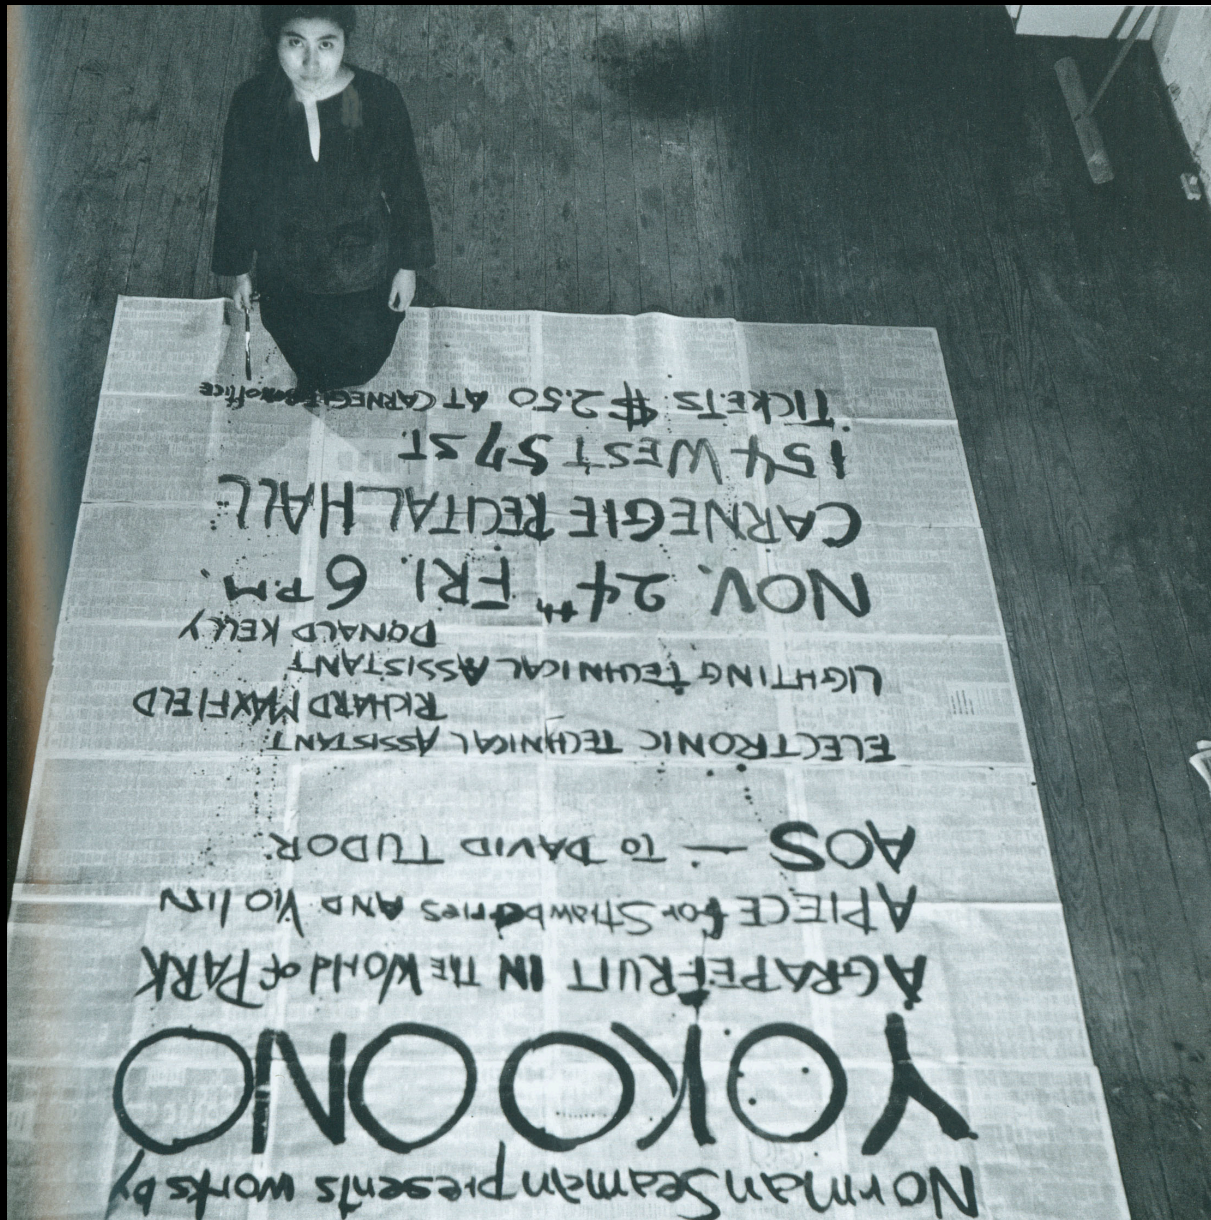 Norman Seaman presents works by
YOKO ONO
A GRAPEFRUIT IN THE WORLD of PARK
A PIECE for Strawberries AND VIOLIN
AOS — TO DAVID TUDOR
ELECTRONIC TECHNICAL ASSISTANT
RICHARD MAXFIELD
LIGHTING TECHNICAL ASSISTANT
DONALD KELLY
NOV. 24th FRI. 6 P.M.
CARNEGIE RECITAL HALL
154 WEST 57 ST.
TICKETS $2.50 AT CARNEGIE Box office